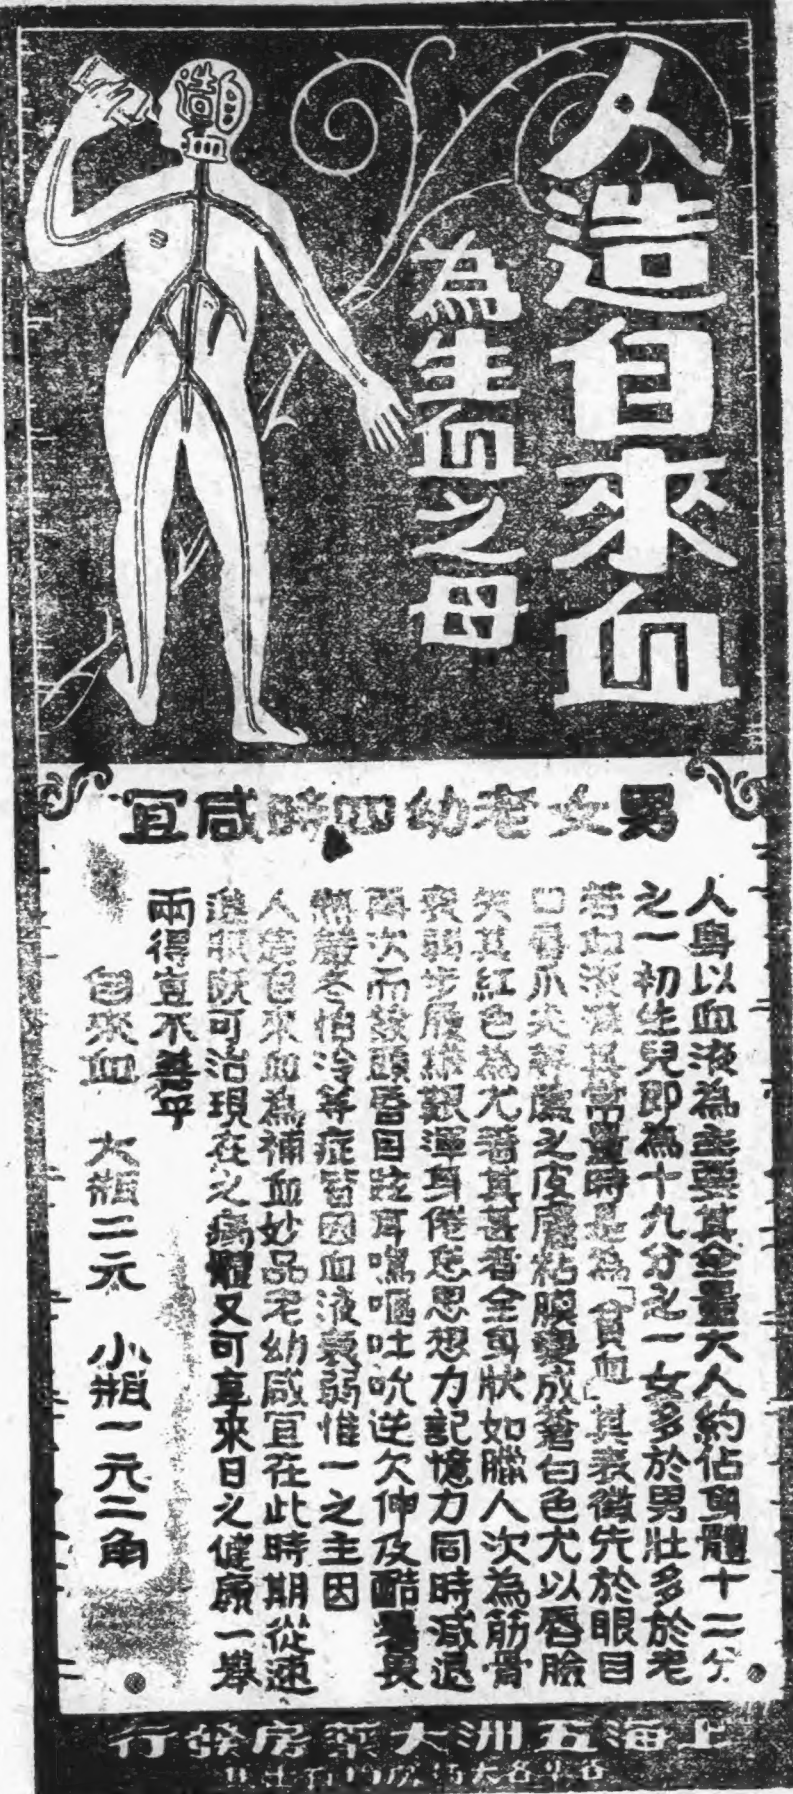 人造自來血
為生血之母
男女老幼四時咸宜
人身以血液為主要其全量大人約佔身體十二分
之一初生兒即為十九分之一女多於男壯多於老
若血液減其常量時是為「貧血」其表徵先於眼目
口唇爪夾等處之皮膚粘膜變成蒼白色尤以唇臉
失其紅色為尤著其甚者全身狀如臘人次為筋骨
衰弱步履維艱渾身倦怠思想力記憶力同時減退
再次而放頭昏目眩耳鳴嘔吐吮逆欠伸及酷暑畏
熱嚴冬怕冷等症皆因血液衰弱惟一之主因
人造自來血為補血妙品老幼咸宜在此時期從速
進服既可治現在之病體又可享來日之健康一舉
兩得豈不善乎
自來血 大瓶二元 小瓶一元二角
上海五洲大藥房發行